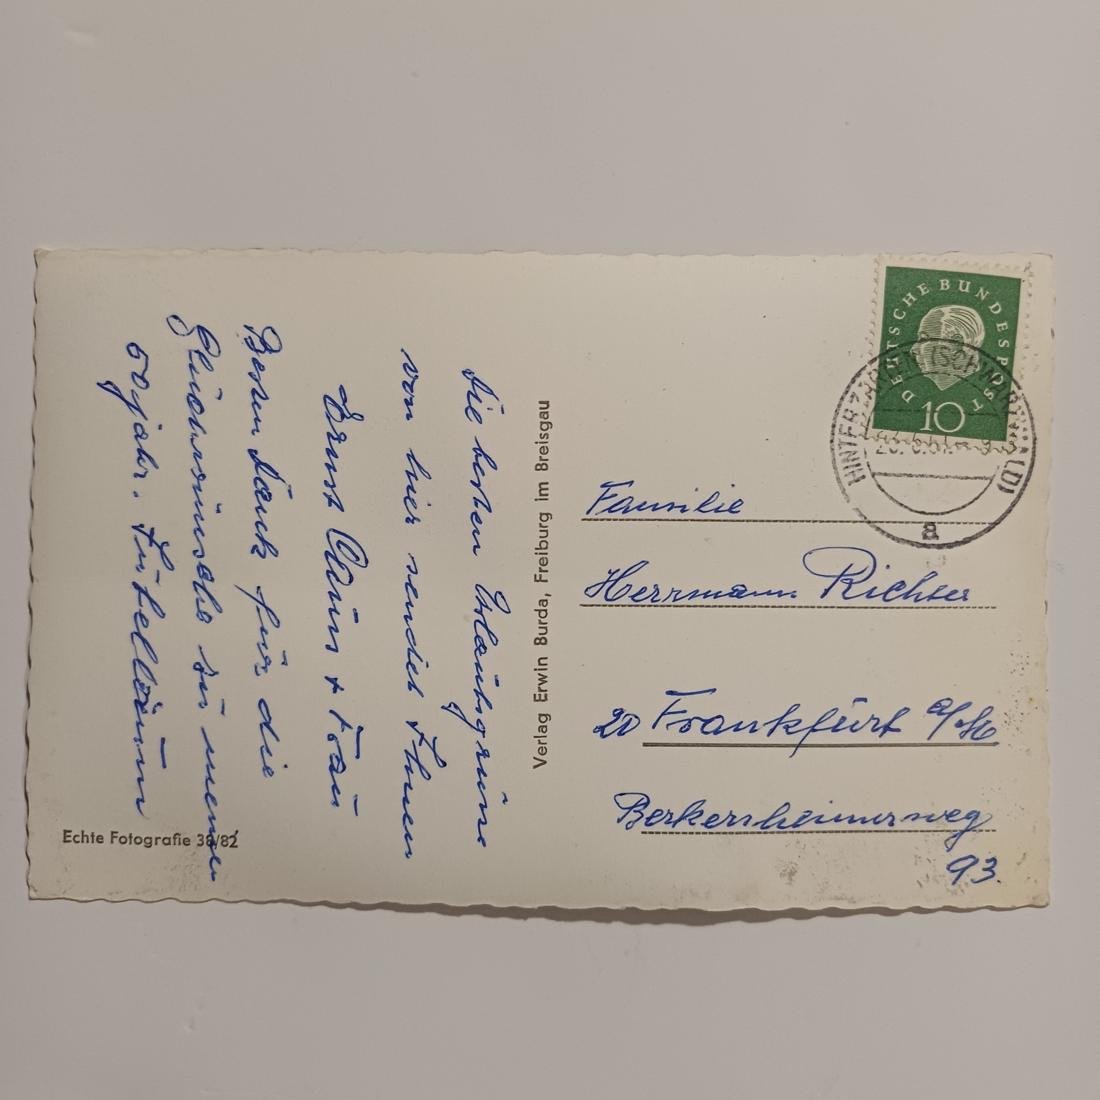 Die besten Urlaubsgrüße
von hier sendet Ihnen
Ernst + Frau
Besten Dank für die
Glückwünsche zu meinem
50 jähr.
Echte Fotografie 38/82
Verlag Erwin Burda, Freiburg im Breisgau
DEUTSCHE BUNDESPOST
10
HINTERZARTEN (SCHWARZWALD)
a
Familie
Herrmann Richter
20 Frankfurt a/M
Berkersheimerweg
93.